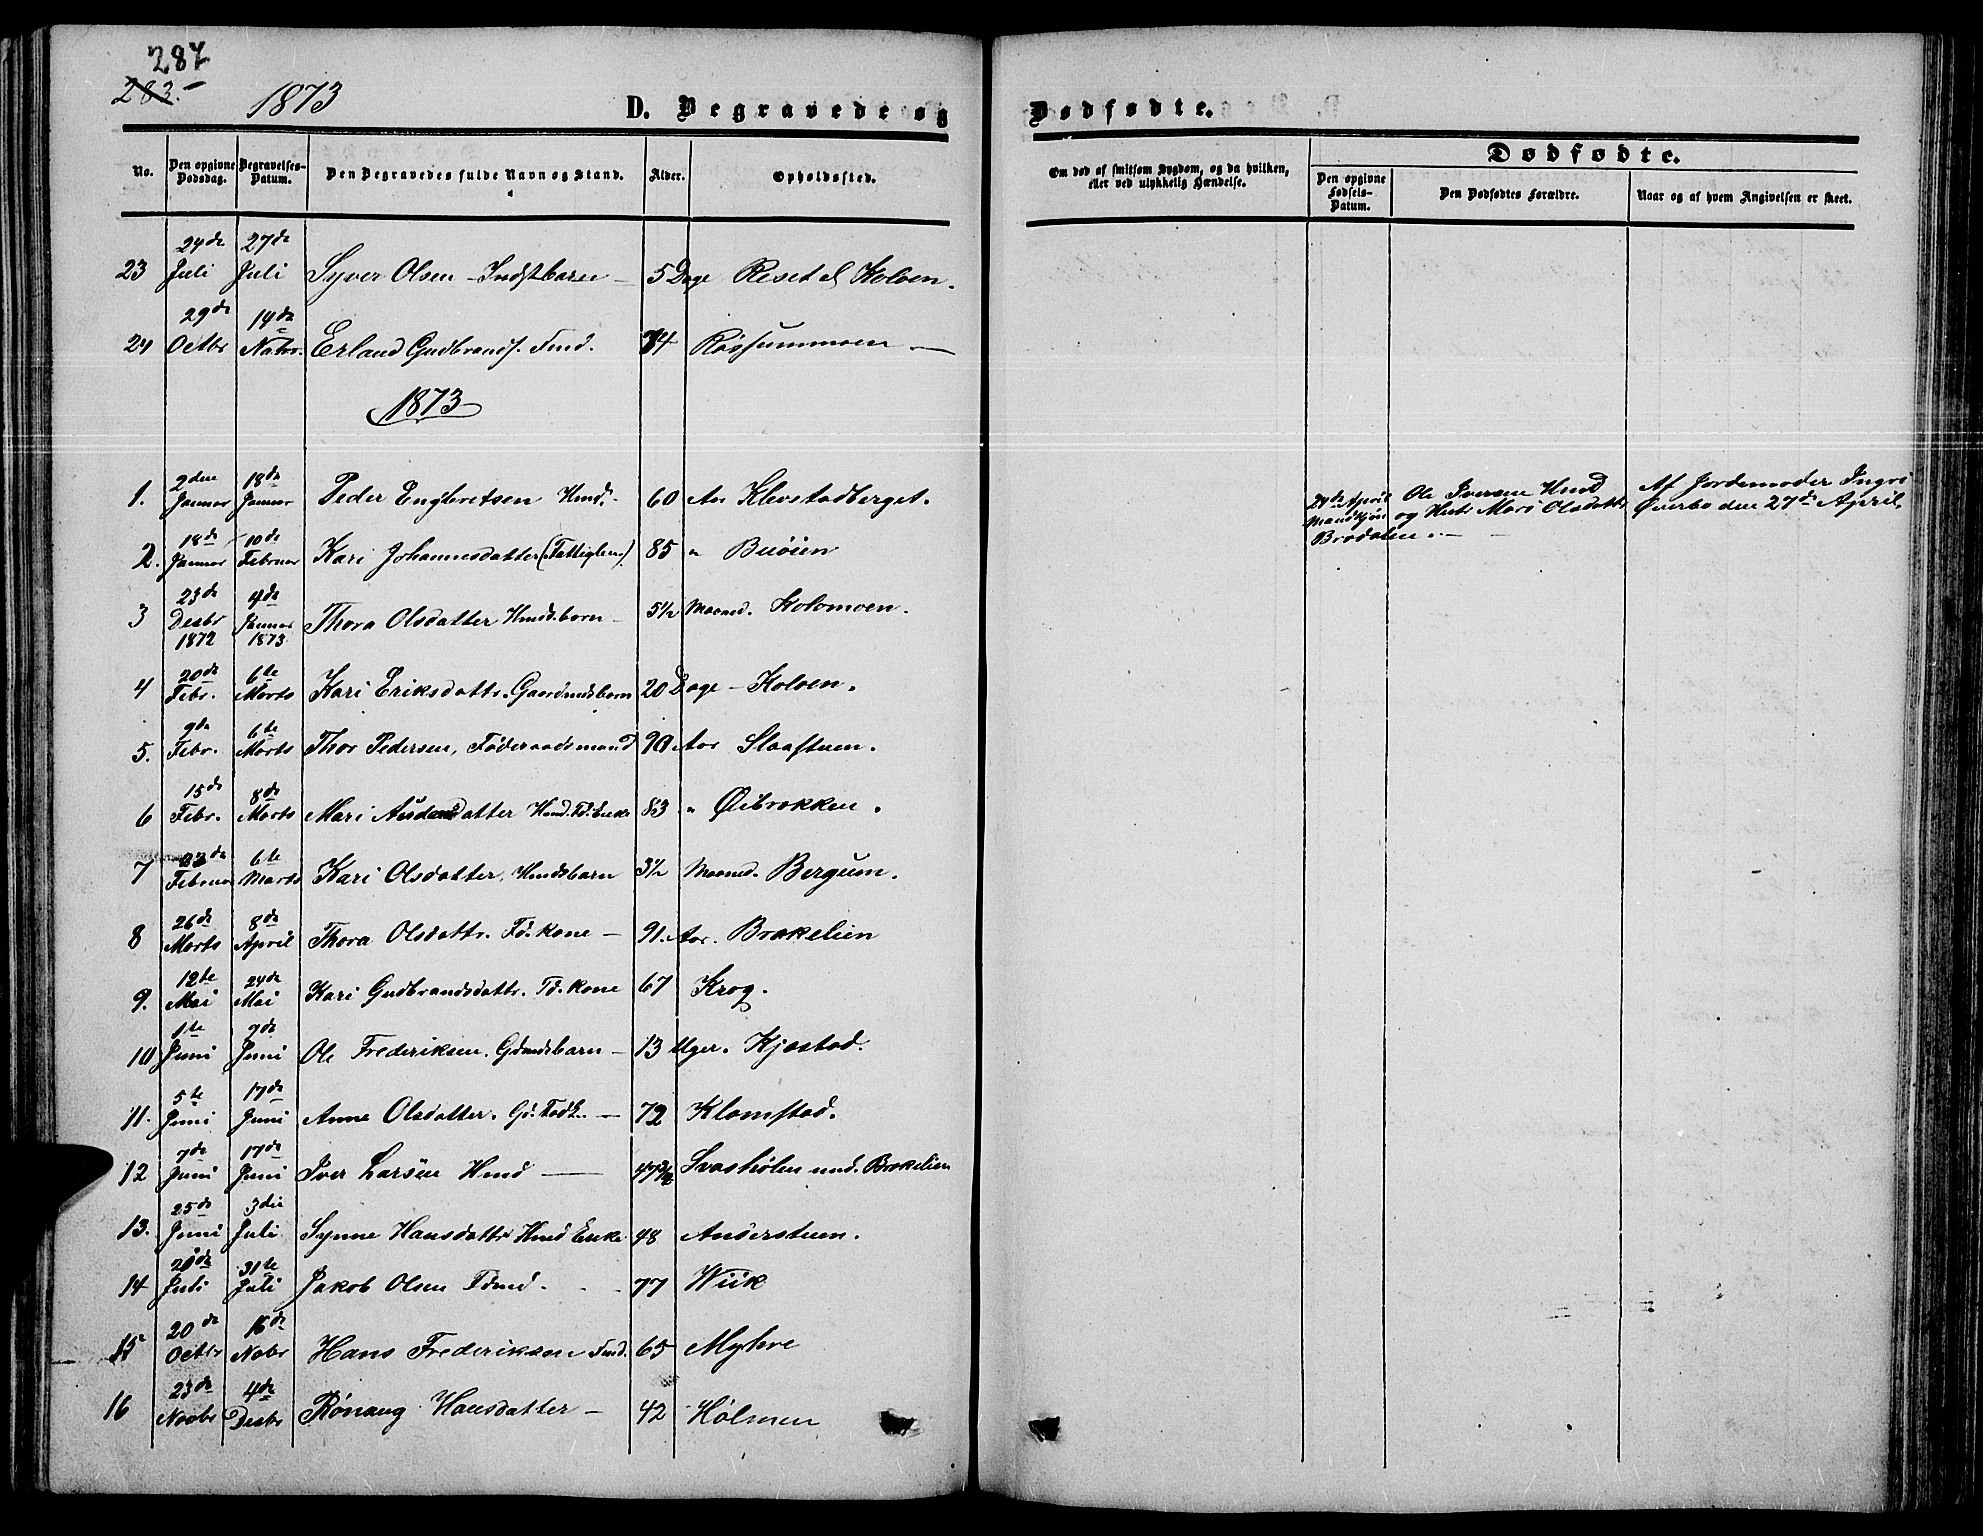 287
283.
1873
D. Begravede og
Dødfødte.
No.
Den opgivne Dødsdag.
Begravelses-Datum.
Den Begravedes fulde Navn og Stand.
Alder.
Opholdssted.
Om død af smitsom Sygdom, og da hvilken, eller ved ulykkelig Hændelse.
Dødfødte.
Den opgivne Fødsels-Datum.
Den Dødfødtes Forældre.
Naar og af hvem Angivelsen er skeet.
23 24de Juli 27de Juli Syver Olsen - Indstbarn - 5 Dage Reset Kolven.
24 29de Octbr 14de Erland Gudbrands. Fmd. 74 Røssummoen -
1873
1. 2den Januar 18de Januar Peder Engbretsen Hmd. 60 Aar Klevstadberget.
2. 18de Januar 10de Februar Kari Johannesdatter (Fattiglem) 85 " Buøien
3 23de Desbr 1872 4de Januar 1873 Thora Olsdatter Hmdsbarn - 5½ Maaned. Kolomoen.
4 20de Febr. 6te Marts Kari Eriksdattr. Gaardmdsbarn 20 Dage - Kolven.
5. 9de Febr. 6te Marts Thor Pedersen, Føderaadsmand 90 Aar Slaastuen.
6 15de Febr. 8de Marts Mari Audensdatter Hmd. Fd. Enke 83 " Øibrakken.
7 23de Februar 6te Marts Kari Olsdatter. Hmdsbarn 3½ Maaned. Bergum.
8 26de Marts 8de April Thora Olsdattr. Fd. kone - 91. Aar. Brakelien
9. 12te Mai 24de Mai Kari Gudbrandsdattr. Fd. kone 67 Krog.
10 1te Juni 7de Juni Ole Frederiksen. Gdmdsbarn - 13 Uger. Kjøstad.
11. 5te Juni 17de Juni Anne Olsdatter. Gd. Fodk. - 72 Klomstad.
12 7de Juni 17de Juni Iver Larsen Hmd - 47 Svashølen und. Brakelien
13. 25de Juni 3die Juli Synne Hansdattr Hmd Enke 48 Anderstuen.
14 Juli 31te Juli Jakob Olsen Fdmd. 77 Wiik
15 20de Octbr 16de Nobr Hans Frederiksen Fmd. 65 Myhre
16 23de Novbr 4de Desbr Rønaug Hansdatter - 42 Hølmen
April Mandkjøn Brodalen. -
Ole Iversen Hmd og Hust. Mari Olsdattr
Af Jordemoder Ingri Øverbø den 27de April.